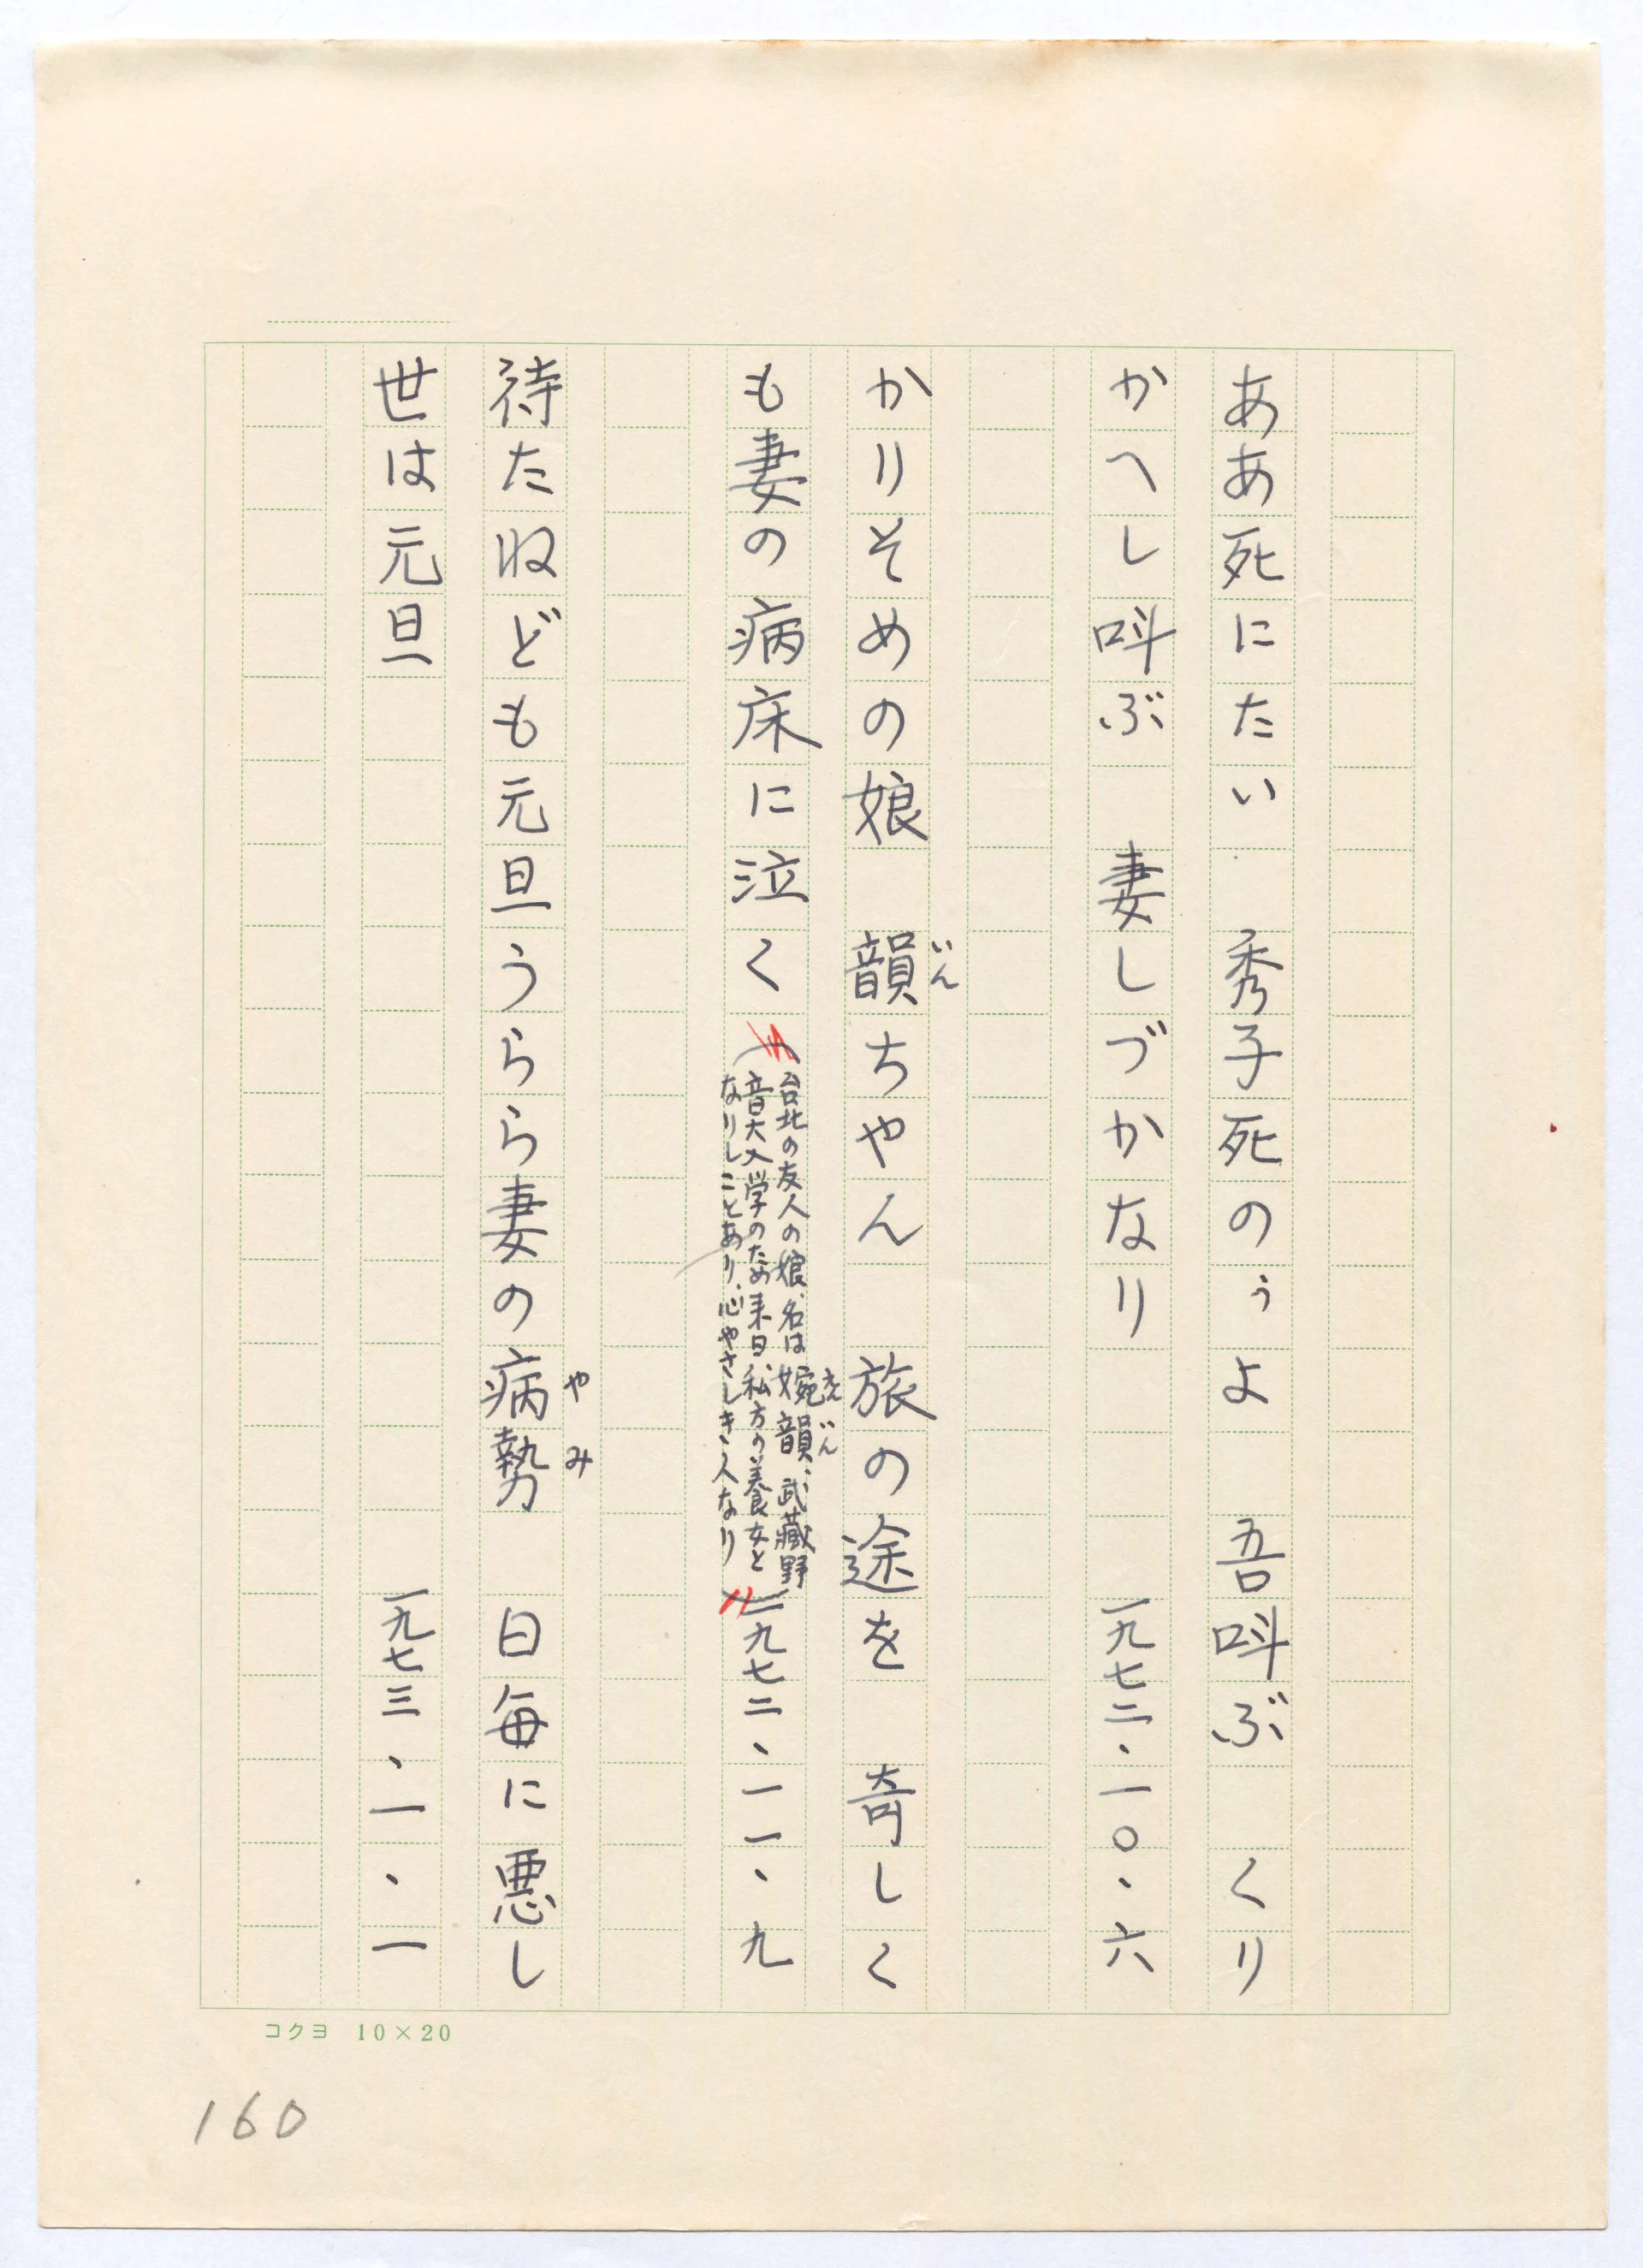 ああ死にたい　秀子死のぅよ　吾呌ぶ　くり
かへし呌ぶ　妻しづかなり　一九七二・一〇・六
かりそめの娘　韻ちやん　旅の途を　奇しく
いん
も妻の病床に泣く（台北の友人の娘、名は婉韻、武蔵野
えんいん
音大入学のため来日、私方の養女と
なりしことあり、心やさしき人なり）一九七二、一一、九
待たねども元旦うらら妻の病勢　日毎に悪し
やみ
世は元旦　一九七三、一、一
コクヨ　10×20
160